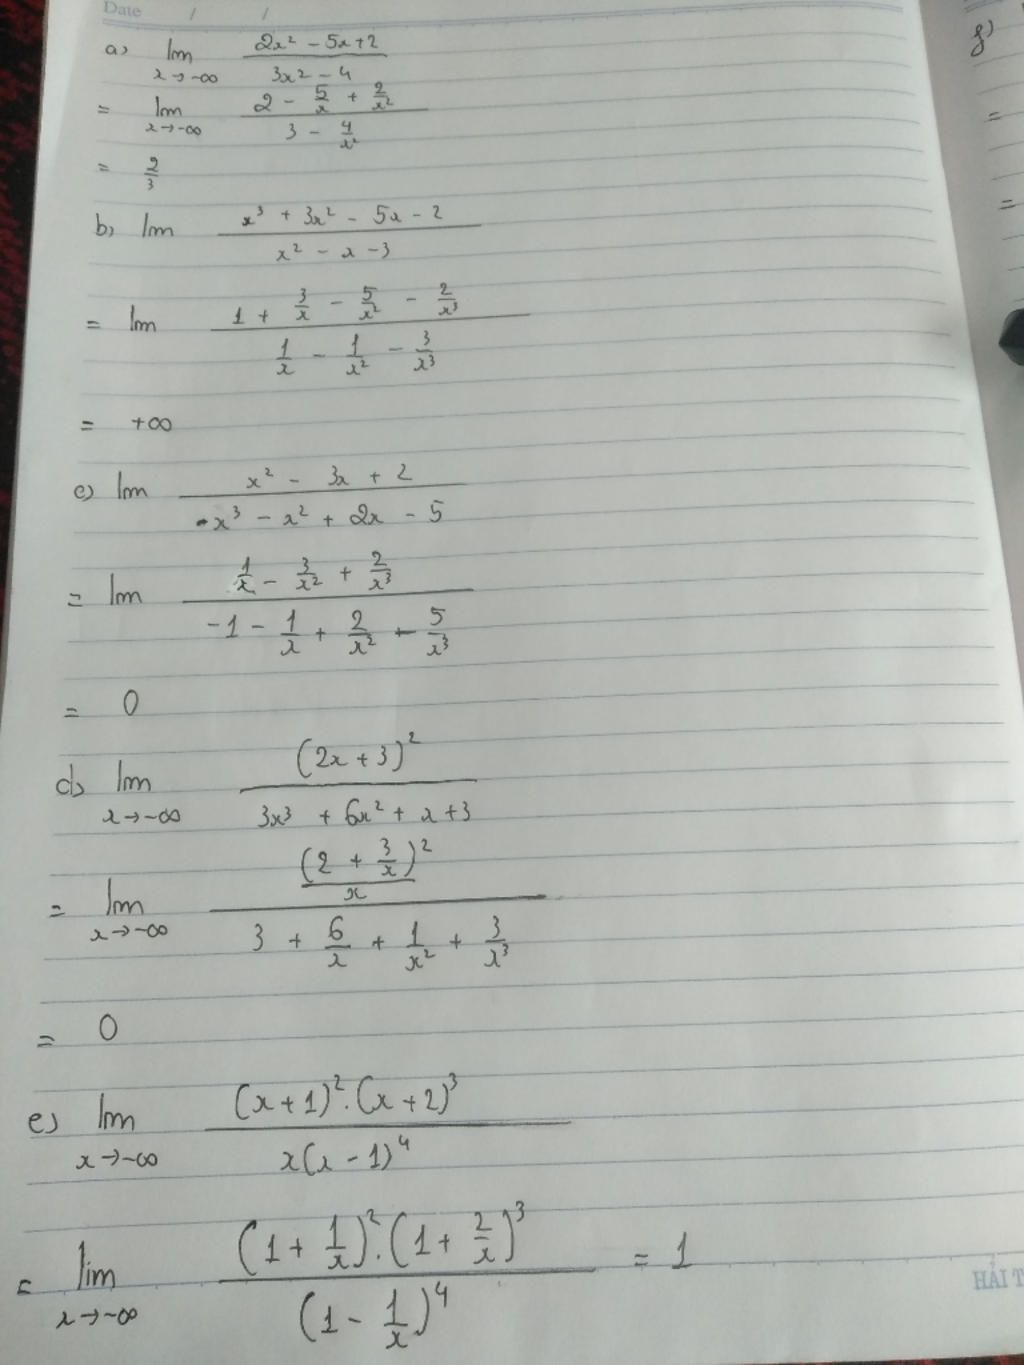 Date / /
a) lim x→-∞ (2x² - 5x + 2)/(3x² - 4)
= lim x→-∞ (2 - 5/x + 2/x²)/(3 - 4/x²)
= 2/3
b) lim (x³ + 3x² - 5x - 2)/(x² - x - 3)
= lim (1 + 3/x - 5/x² - 2/x³)/(1/x - 1/x² - 3/x³)
= +∞
c) lim (x² - 3x + 2)/(-x³ - x² + 2x - 5)
= lim (1/x - 3/x² + 2/x³)/(-1 - 1/x + 2/x² - 5/x³)
= 0
d) lim x→-∞ (2x + 3)²/(3x³ + 6x² + x + 3)
= lim x→-∞ ((2 + 3/x)²/x)/(3 + 6/x + 1/x² + 3/x³)
= 0
e) lim x→-∞ (x + 1)².(x + 2)³/(x(x - 1)⁴)
= lim x→-∞ (1 + 1/x)².(1 + 2/x)³/(1 - 1/x)⁴ = 1
HẢI T
f)
=
=